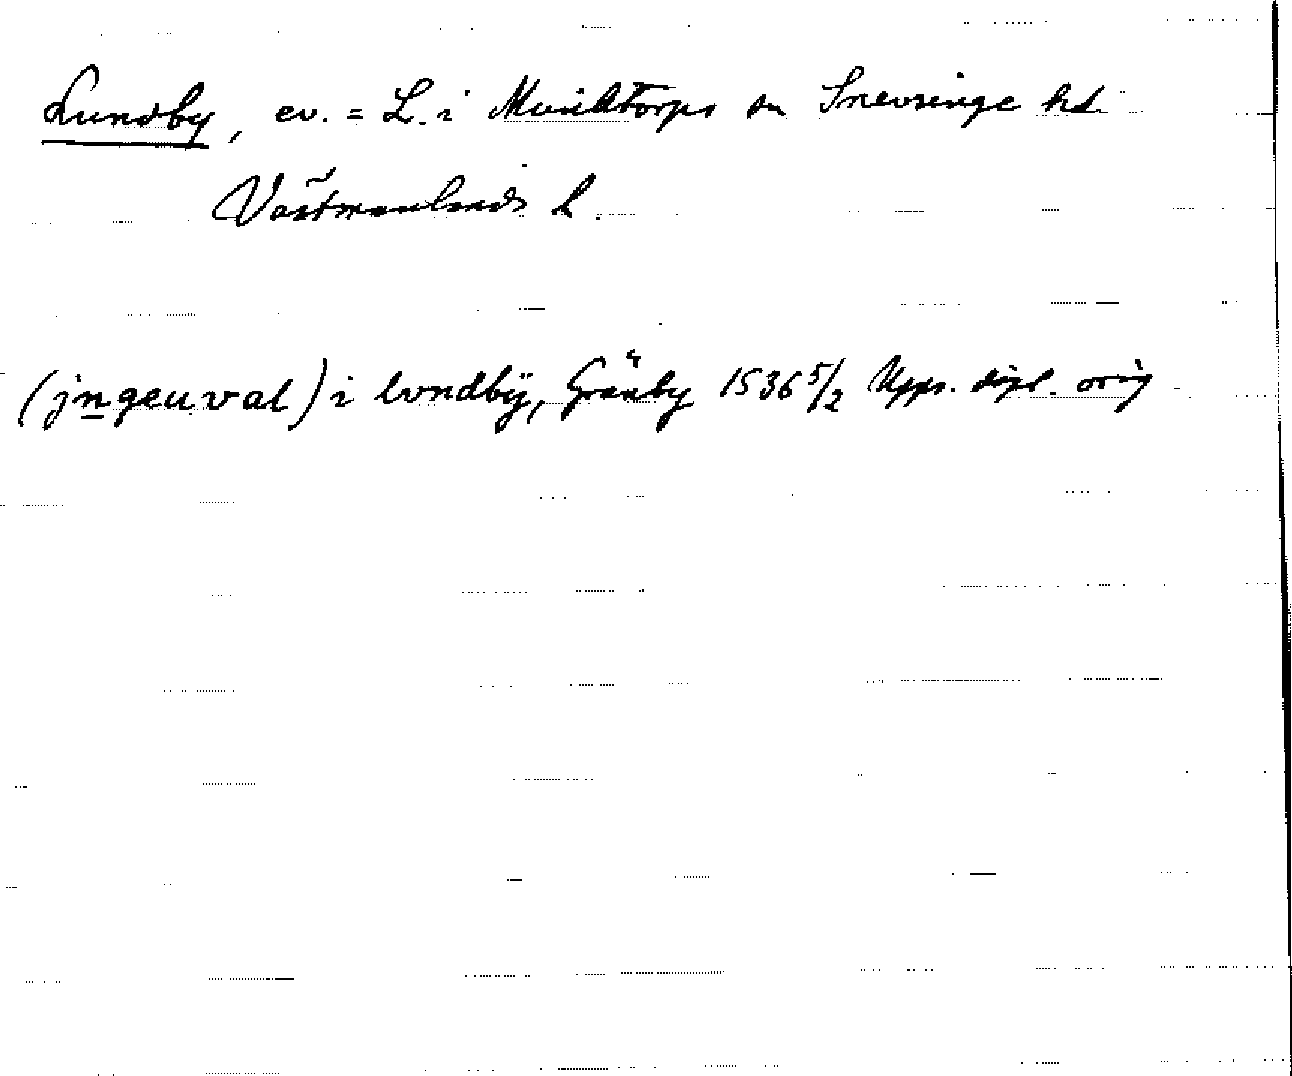 Lundby, ev. = L. i Munktorps sn Snevringe hd
Västmanlands l.
(jngeuval) i lvndbÿ, Gränby 1536 5/2 Upps. dipl. orig